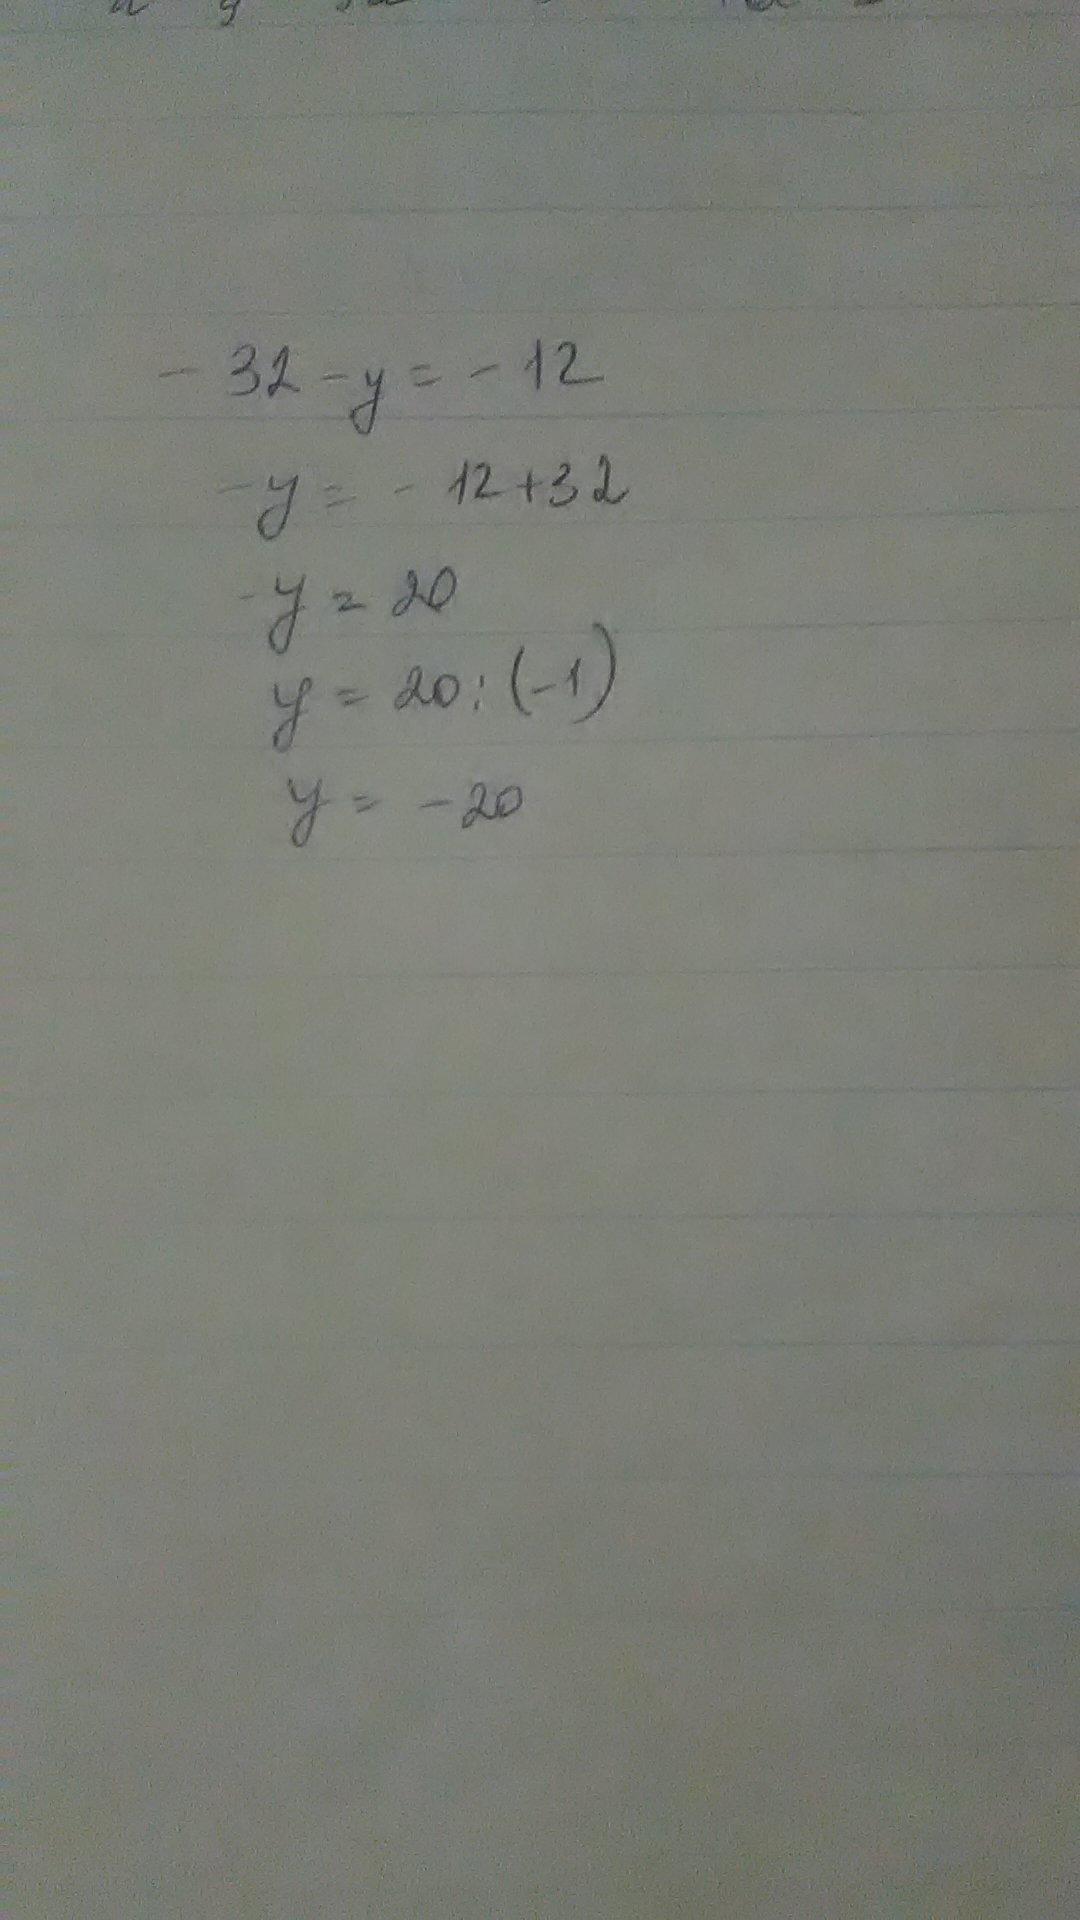 - 32 - y = - 12
- y = - 12 + 32
- y = 20
y = 20 : (-1)
y = - 20